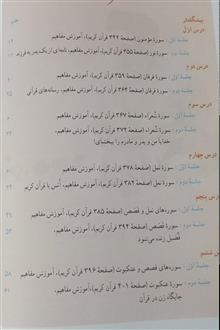 پیشگفتار
درس اول
جلسهٔ اول : سورهٔ مؤمنون (صفحهٔ ۳۴۲ قرآن کریم)، آموزش مفاهیم
جلسهٔ دوم : سورهٔ نور (صفحهٔ ۳۵۵ قرآن کریم)، آموزش مفاهیم، نامه‌ای از یک پدر به فرزند
درس دوم
جلسهٔ اول : سورهٔ فرقان (صفحهٔ ۳۵۹ قرآن کریم)، آموزش مفاهیم
جلسهٔ دوم : سورهٔ فرقان (صفحهٔ ۳۶۴ قرآن کریم)، آموزش مفاهیم، رسانه‌های قرآنی
درس سوم
جلسهٔ اول : سورهٔ شُعراء (صفحهٔ ۳۶۷ قرآن کریم)، آموزش مفاهیم
جلسهٔ دوم : سورهٔ شُعراء (صفحهٔ ۳۷۲ قرآن کریم)، آموزش مفاهیم،
خدایا من و پدر و مادرم را ببخشای!
درس چهارم
جلسهٔ اول : سورهٔ نمل (صفحهٔ ۳۷۸ قرآن کریم)، آموزش مفاهیم
جلسهٔ دوم : سورهٔ نمل (صفحهٔ ۳۸۲ قرآن کریم)، آموزش مفاهیم، اُنس با قرآن کریم
درس پنجم
جلسهٔ اول : سوره‌های نمل و قصص (صفحهٔ ۳۸۵ قرآن کریم)، آموزش مفاهیم
جلسهٔ دوم : سورهٔ قصص (صفحهٔ ۳۹۴ قرآن کریم)، آموزش مفاهیم،
فضیل زنده می‌شود
درس ششم
جلسهٔ اول : سوره‌های قصص و عنکبوت (صفحهٔ ۳۹۶ قرآن کریم)، آموزش مفاهیم ۵۸
جلسهٔ دوم : سورهٔ عنکبوت (صفحهٔ ۴۰۱ قرآن کریم)، آموزش مفاهیم،
جایگاه زن در قرآن